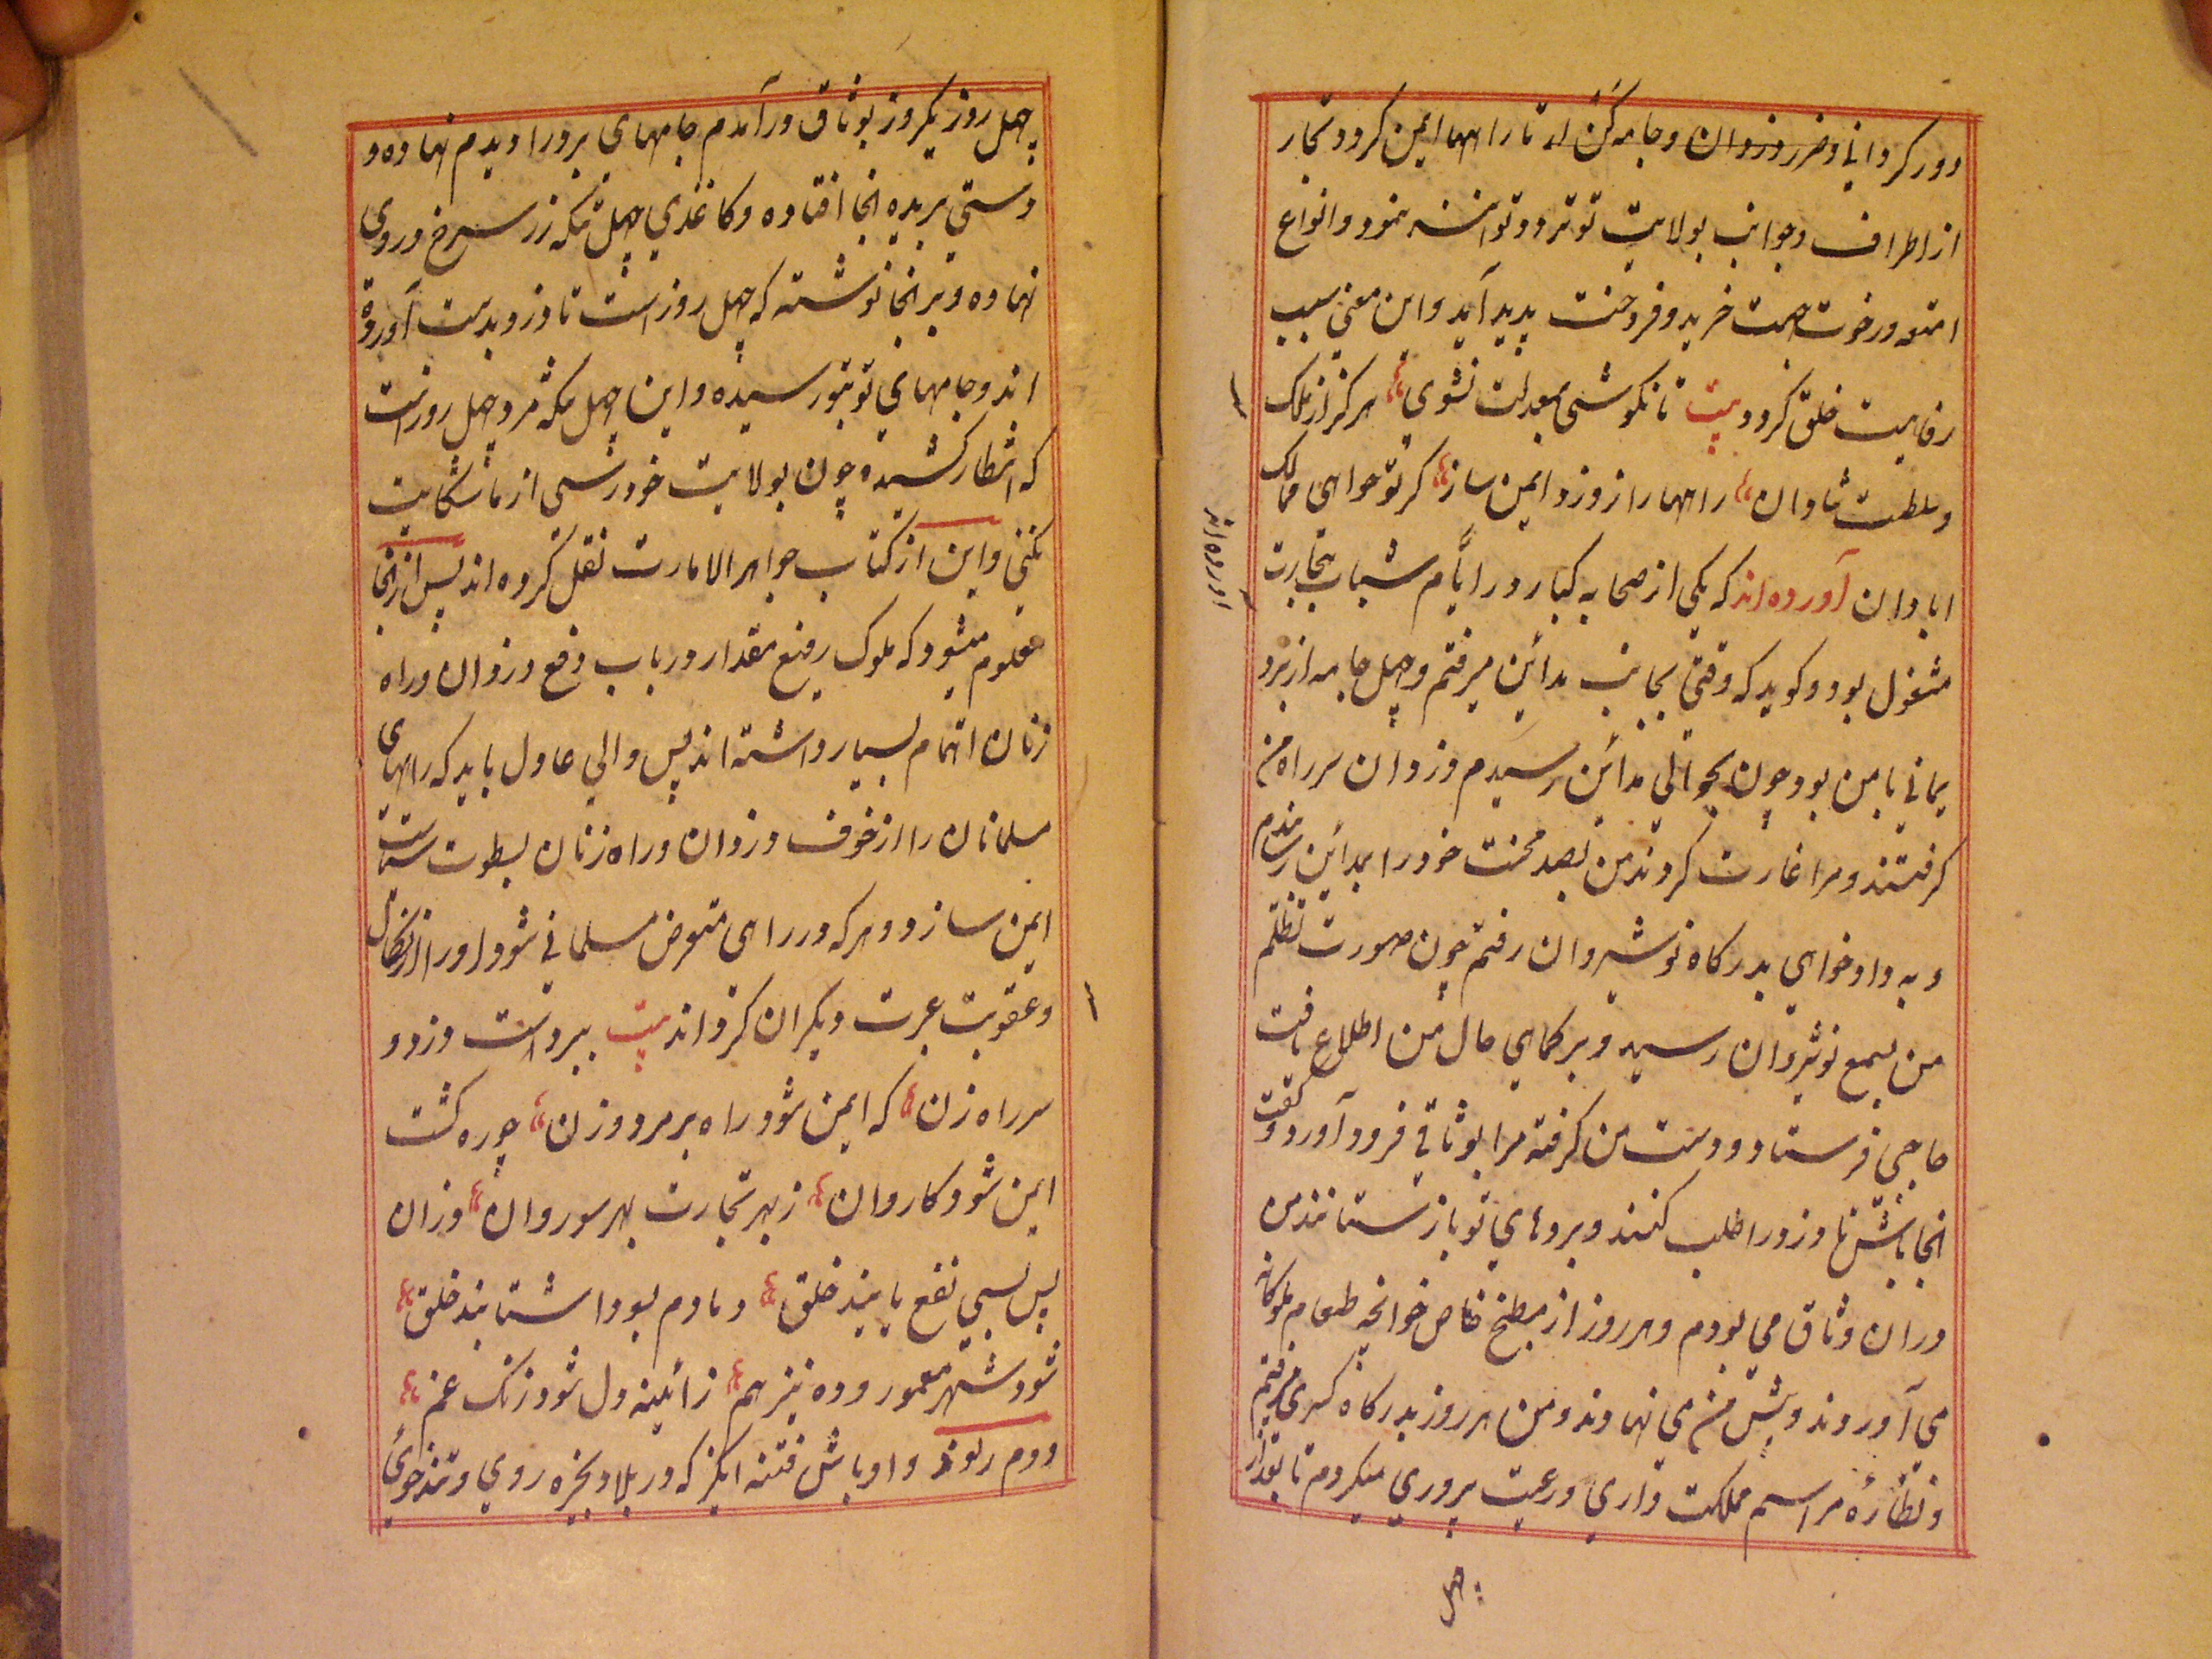 دور کردانی و ضرر دزدان و جامه کن ان تا راهها ایمن کردد و تجار
از اطراف و جوانب بولایت تو تردد توانند نمود و انواع
امتعه و رخوت بجهت خرید و فروخت پدید آید و این معنی سبب
رفاهیت خلق کردد بیت تا نکوشی بمعدلت نشوی هرکز از ملک
و سلطنت شادان راهها را ز دزد ایمن ساز کر تو خواهی ممالک
ابادان آورده‌اند که یکی از صحابه کبار در ایّام شباب بتجارت
مشغول بود و کوید که وقتی بجانب مدائن میرفتم و چهل جامه از برد
یمانی با من بود چون بحوالی مدائن رسیدم دزدان سر راه من
کرفتند و مرا غارت کردند من بصد محنت خود را بمدائن رسانیدم
و به دادخواهی بدرکاه نوشیروان رفتم چون صورت تظلم
من بسمع نوشیروان رسید و بر کماهی حال من اطلاع یافت
حاجبی فرستاد و دست من کرفته مرا بوثاقی فرود آورد و کفت
انجا باش تا دزد را طلب کنند و بردهای تو باز ستانند من
دران وثاق می بودم و هر روز از مطبخ خاص خوانچه طعام ملوکانه
می آوردند و پیش من می نهادند و من هر روز بدرکاه کسری میرفتم
و نظارهٔ مراسم مملکت داری و رعیت پروری میکردم تا بعد از
چهل
آورده‌اند
چهل روز یکروز بوثاق درآمدم جامهای برد را دیدم نهاده و
دستی بریده انجا افتاده و کاغذی چهل تنکه زر سرخ در وی
نهاده و بر انجا نوشته که چهل روز است تا دزد بدست آورده
اند و جامهای تو بتو رسیده و این چهل تنکه مزد چهل روز است
که انتظار کشیده چون بولایت خود رسی از ما شکایت
نکنی و این از کتاب جواهر الامارت نقل کرده اند پس از انجا
معلوم میشود که ملوک رفیع مقدار در باب دفع دزدان و راه
زنان اهتمام بسیار داشته اند پس والی عادل باید که راههای
مسلمانان را از خوف دزدان و راه زنان بسطوت سیاست
ایمن سازد و هر که در راهی متعرض مسلمانی شود او را از نکال
و عقوبت عبرت دیکران کرداند بیت ببر دست دزد و
سر راه زن که ایمن شود راه بر مرد و زن چو ره کشت
ایمن شود کاروان ز بهر تجارت بهر سو روان وزان
پس بسی نفع یابند خلق دمادم بسودا شتابند خلق
شود شهر معمور و ده نیز هم ز آئینه دل شود زنک غم
دوم رنود و اوباش فتنه انکیز که در بلاد بخیره روی و تندخوئی